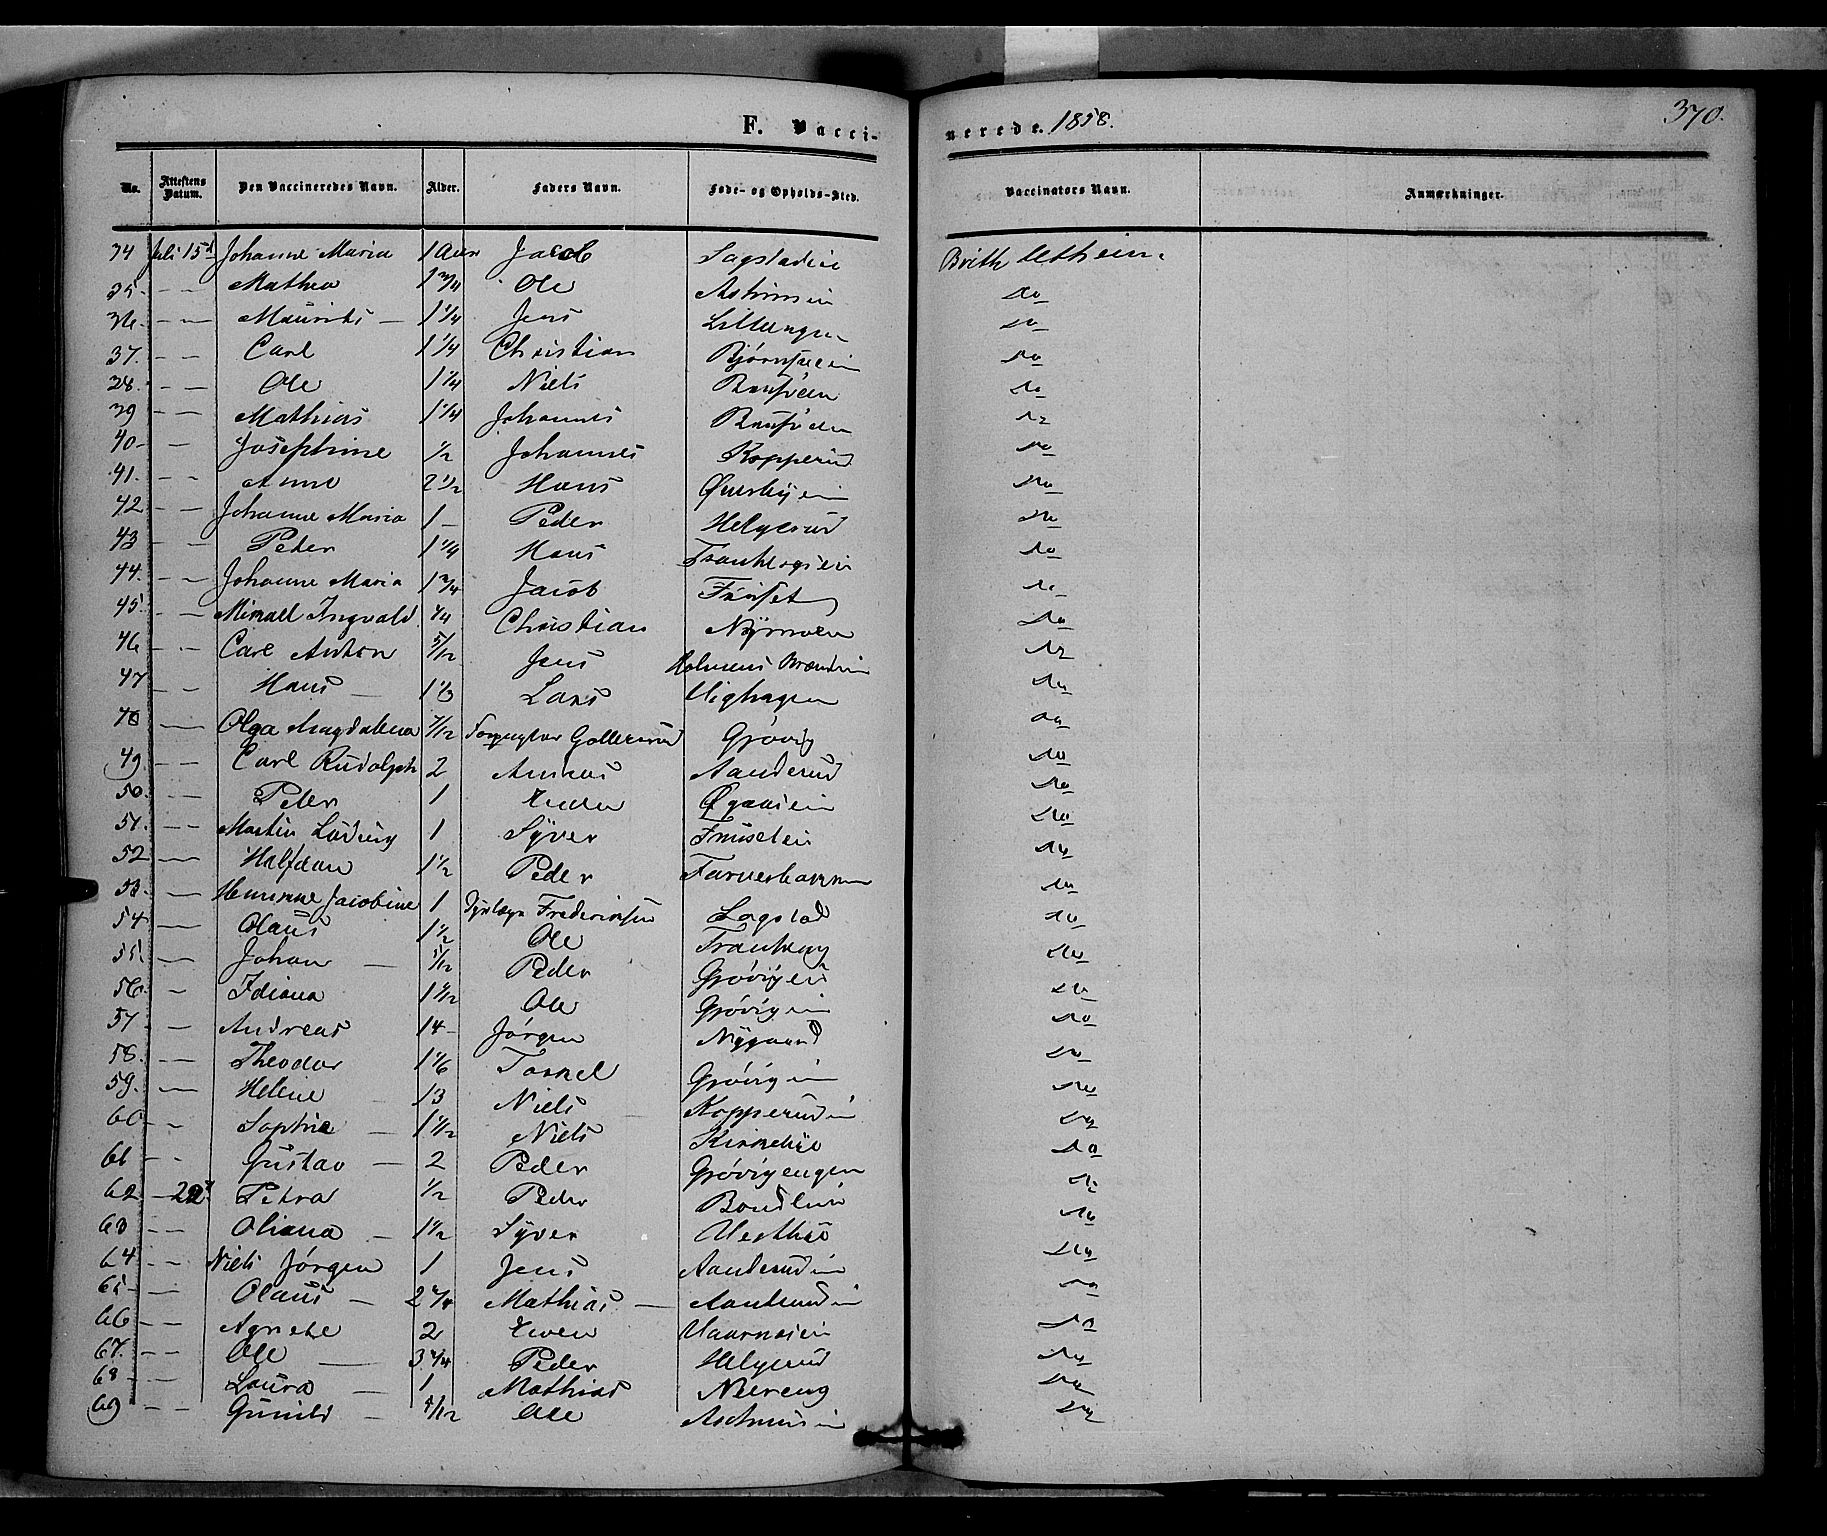 F. Vaccinerede. 1858. 370.
No. Attestens Datum. Den Vaccineredes Navn. Alder. Faders Navn. Føde- og Opholds-Sted. Vaccinators Navn. Anmærkninger.
34 Juli 15d Johanne Maria 1 Aar Jacob Sagstadeie Brith
35. — — Mathea 1 3/4 Ole do
36. — — Maurits — 1 1/4 Jens Lilleengen do
37. — — Carl 1 1/4 Christian do
38. — — Ole 1 1/4 Niels do
39 — — Mathias 1 1/4 Johannes do
40 — — Josephine 1/2 Johannes Kopperud do
41. — — Anne 2 1/2 Hans Øverbyein do
42 — — Johanne Maria 1 — Peder Helgerud do
43 — — Peder 1 1/4 Hans do
44. — — Johanne Maria 1 3/4 Jacob do
45. — — Mikael Ingvald Christian Nÿmoen do
46 — — Carl Anton 5/12 Jens Holmens do
47 — — Hans — 1 1/3 Lars do
48 — Olga Magdalena 7/12 Grøvig do
49 — — Carl Rudolph 2 Andreas Aanderud do
50. — — Peder 1 do
51. — — Martin Ludvig 1 Syver do
52 — Halfdan 1 1/2 Peder do
53. — Jacobine 1 Frederiksen Sogstad do
54 — Olaus 1 1/2 Ole Tranberg do
55. — Johan — 5/12 Peder Grøvigeie do
56. — Idiana 1 1/12 Ole Grøvigein do
57 — Andreas 14 — Jørgen Nÿgaard do
58. — — Theodor 1 1/6 Torkel Grøvigein do
59. — Helene — 13 Niels — Kopperudein do
60 — — Sophie — 1 1/12 Niels Kirkebÿe do
61 — — Gustav — 2 Peder Grøvigengen do
62 — 22d Petra 1/2 Peder do
63 — — Oliana — 1 1/2 Syver Vestbÿe do
64 — — Niels Jørgen 1 Jens Aanderudein do
65 — — Olaus — 2 1/4 Mathias — Aanderudein do
66 — — Agnethe 2 Even do
67. — — Ole — 3 1/4 Peder Helgerud do
68 — — Laura — 1 Mathias Nÿereng do
69 — — Gunild — Ole do